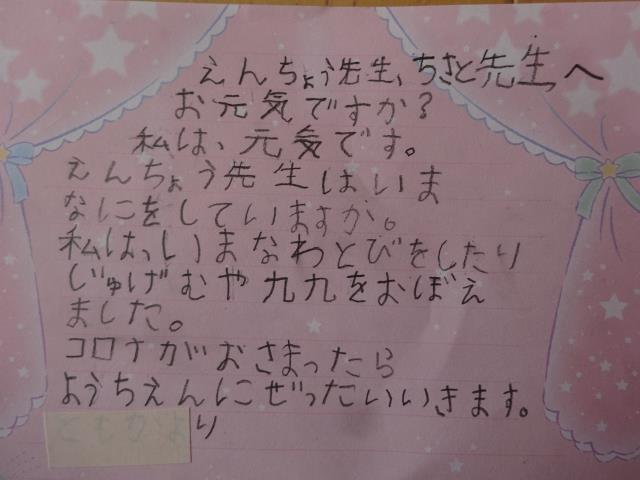 えんちょう先生、ちさと先生へ
お元気ですか?
私は、元気です。
えんちょう先生はいま
なにをしていますか。
私は、いまなわとびをしたり
じゅげむや九九をおぼえ
ました。
コロナがおさまったら
ようちえんにぜったいいきます。
より